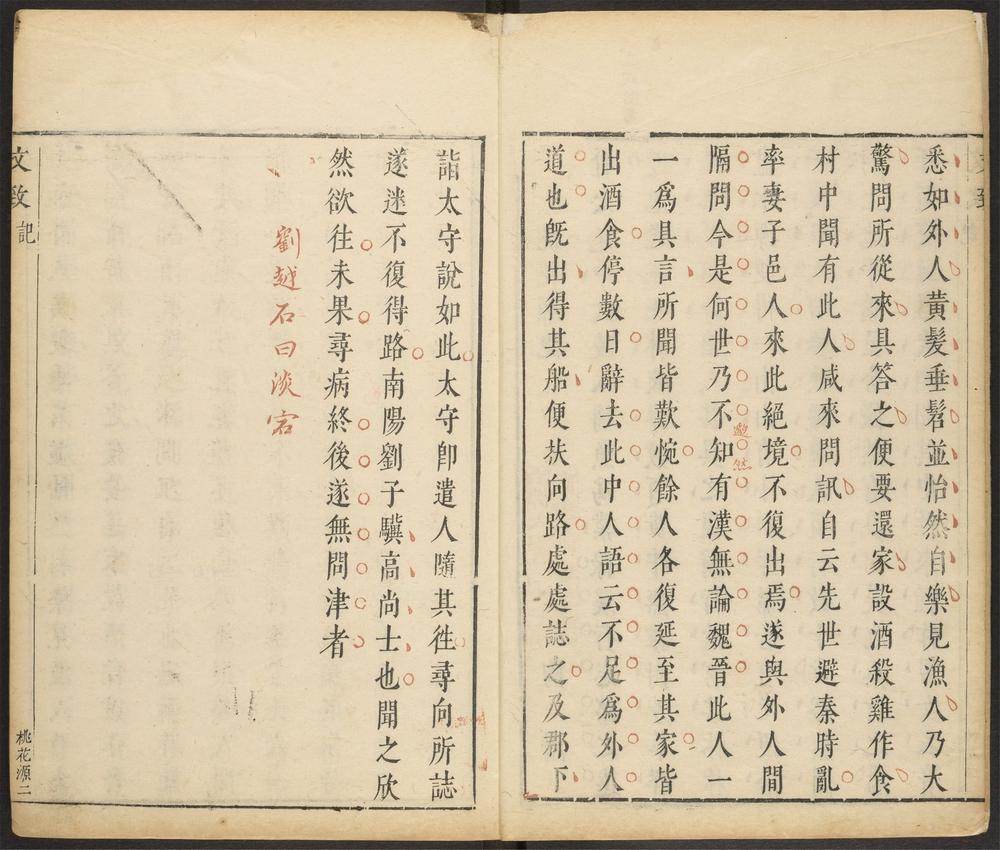 悉如外人黃髮垂髫並怡然自樂見漁人乃大
驚問所從來具答之便要還家設酒殺雞作食
村中聞有此人咸來問訊自云先世避秦時亂
率妻子邑人來此絕境不復出焉遂與外人間
隔問今是何世乃不知有漢無論魏晉此人一
邈然
一爲具言所聞皆歎惋餘人各復延至其家皆
出酒食停數日辭去此中人語云不足爲外人
道也旣出得其船便扶向路處處誌之及郡下
詣太守說如此太守卽遣人隨其徃尋向所誌
遂迷不復得路南陽劉子驥高尚士也聞之欣
然欲徃未果尋病終後遂無問津者
劉越石曰淡宕
文致 記
桃花源二